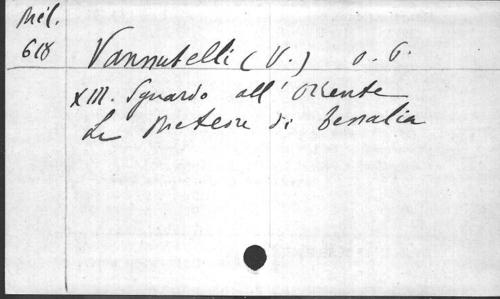 Mél.
618
Vannutelli (V.) o. P.
XIII. Sguardo all'Oriente
Le Meteore di Tessalia